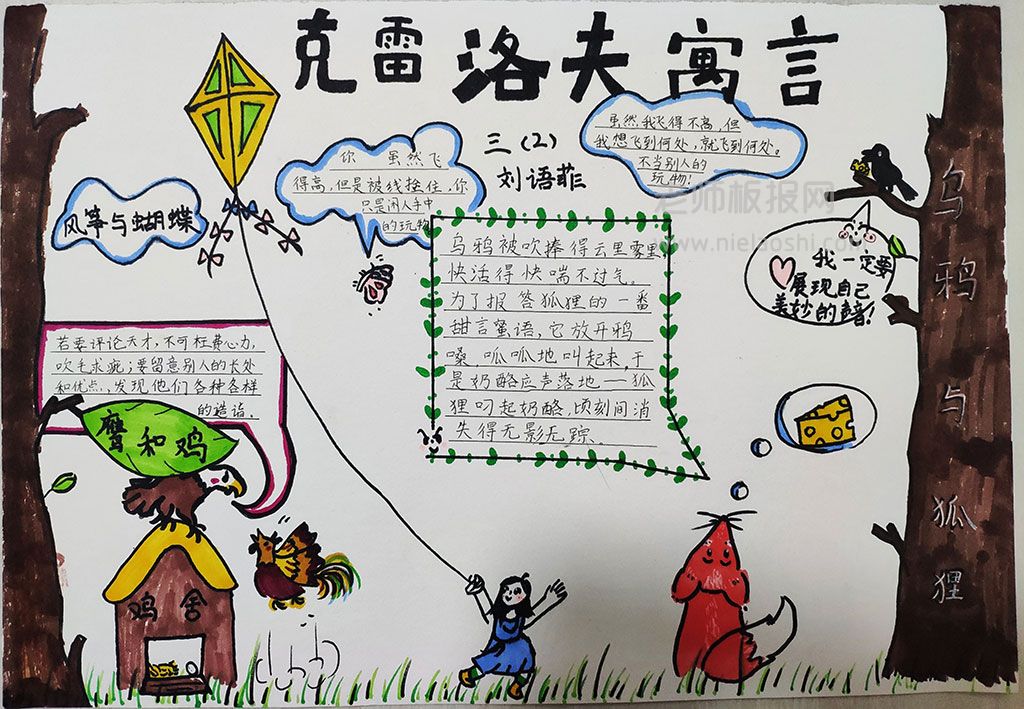 克雷洛夫寓言
三（2）
刘语菲
风筝与蝴蝶
你 虽然飞
得高，但是被线拴住，你
只是闲人手中
的玩物
虽然我飞得不高，但
我想飞到何处，就飞到何处。
不当别人的
玩物！
老师板报网
www.nielaoshi.com
乌鸦被吹捧得云里雾里
快活得快喘不过气。
为了报答狐狸的一番
甜言蜜语，它放开鸦
嗓，呱呱地叫起来，于
是奶酪应声落地——狐
狸叼起奶酪，顷刻间消
失得无影无踪。
我一定要
展现自己
美妙的声音！
乌鸦与狐狸
若要评论天才，不可枉费心力，
吹毛求疵；要留意别人的长处
和优点，发现他们各种各样
的造诣。
鹰和鸡
鸡舍